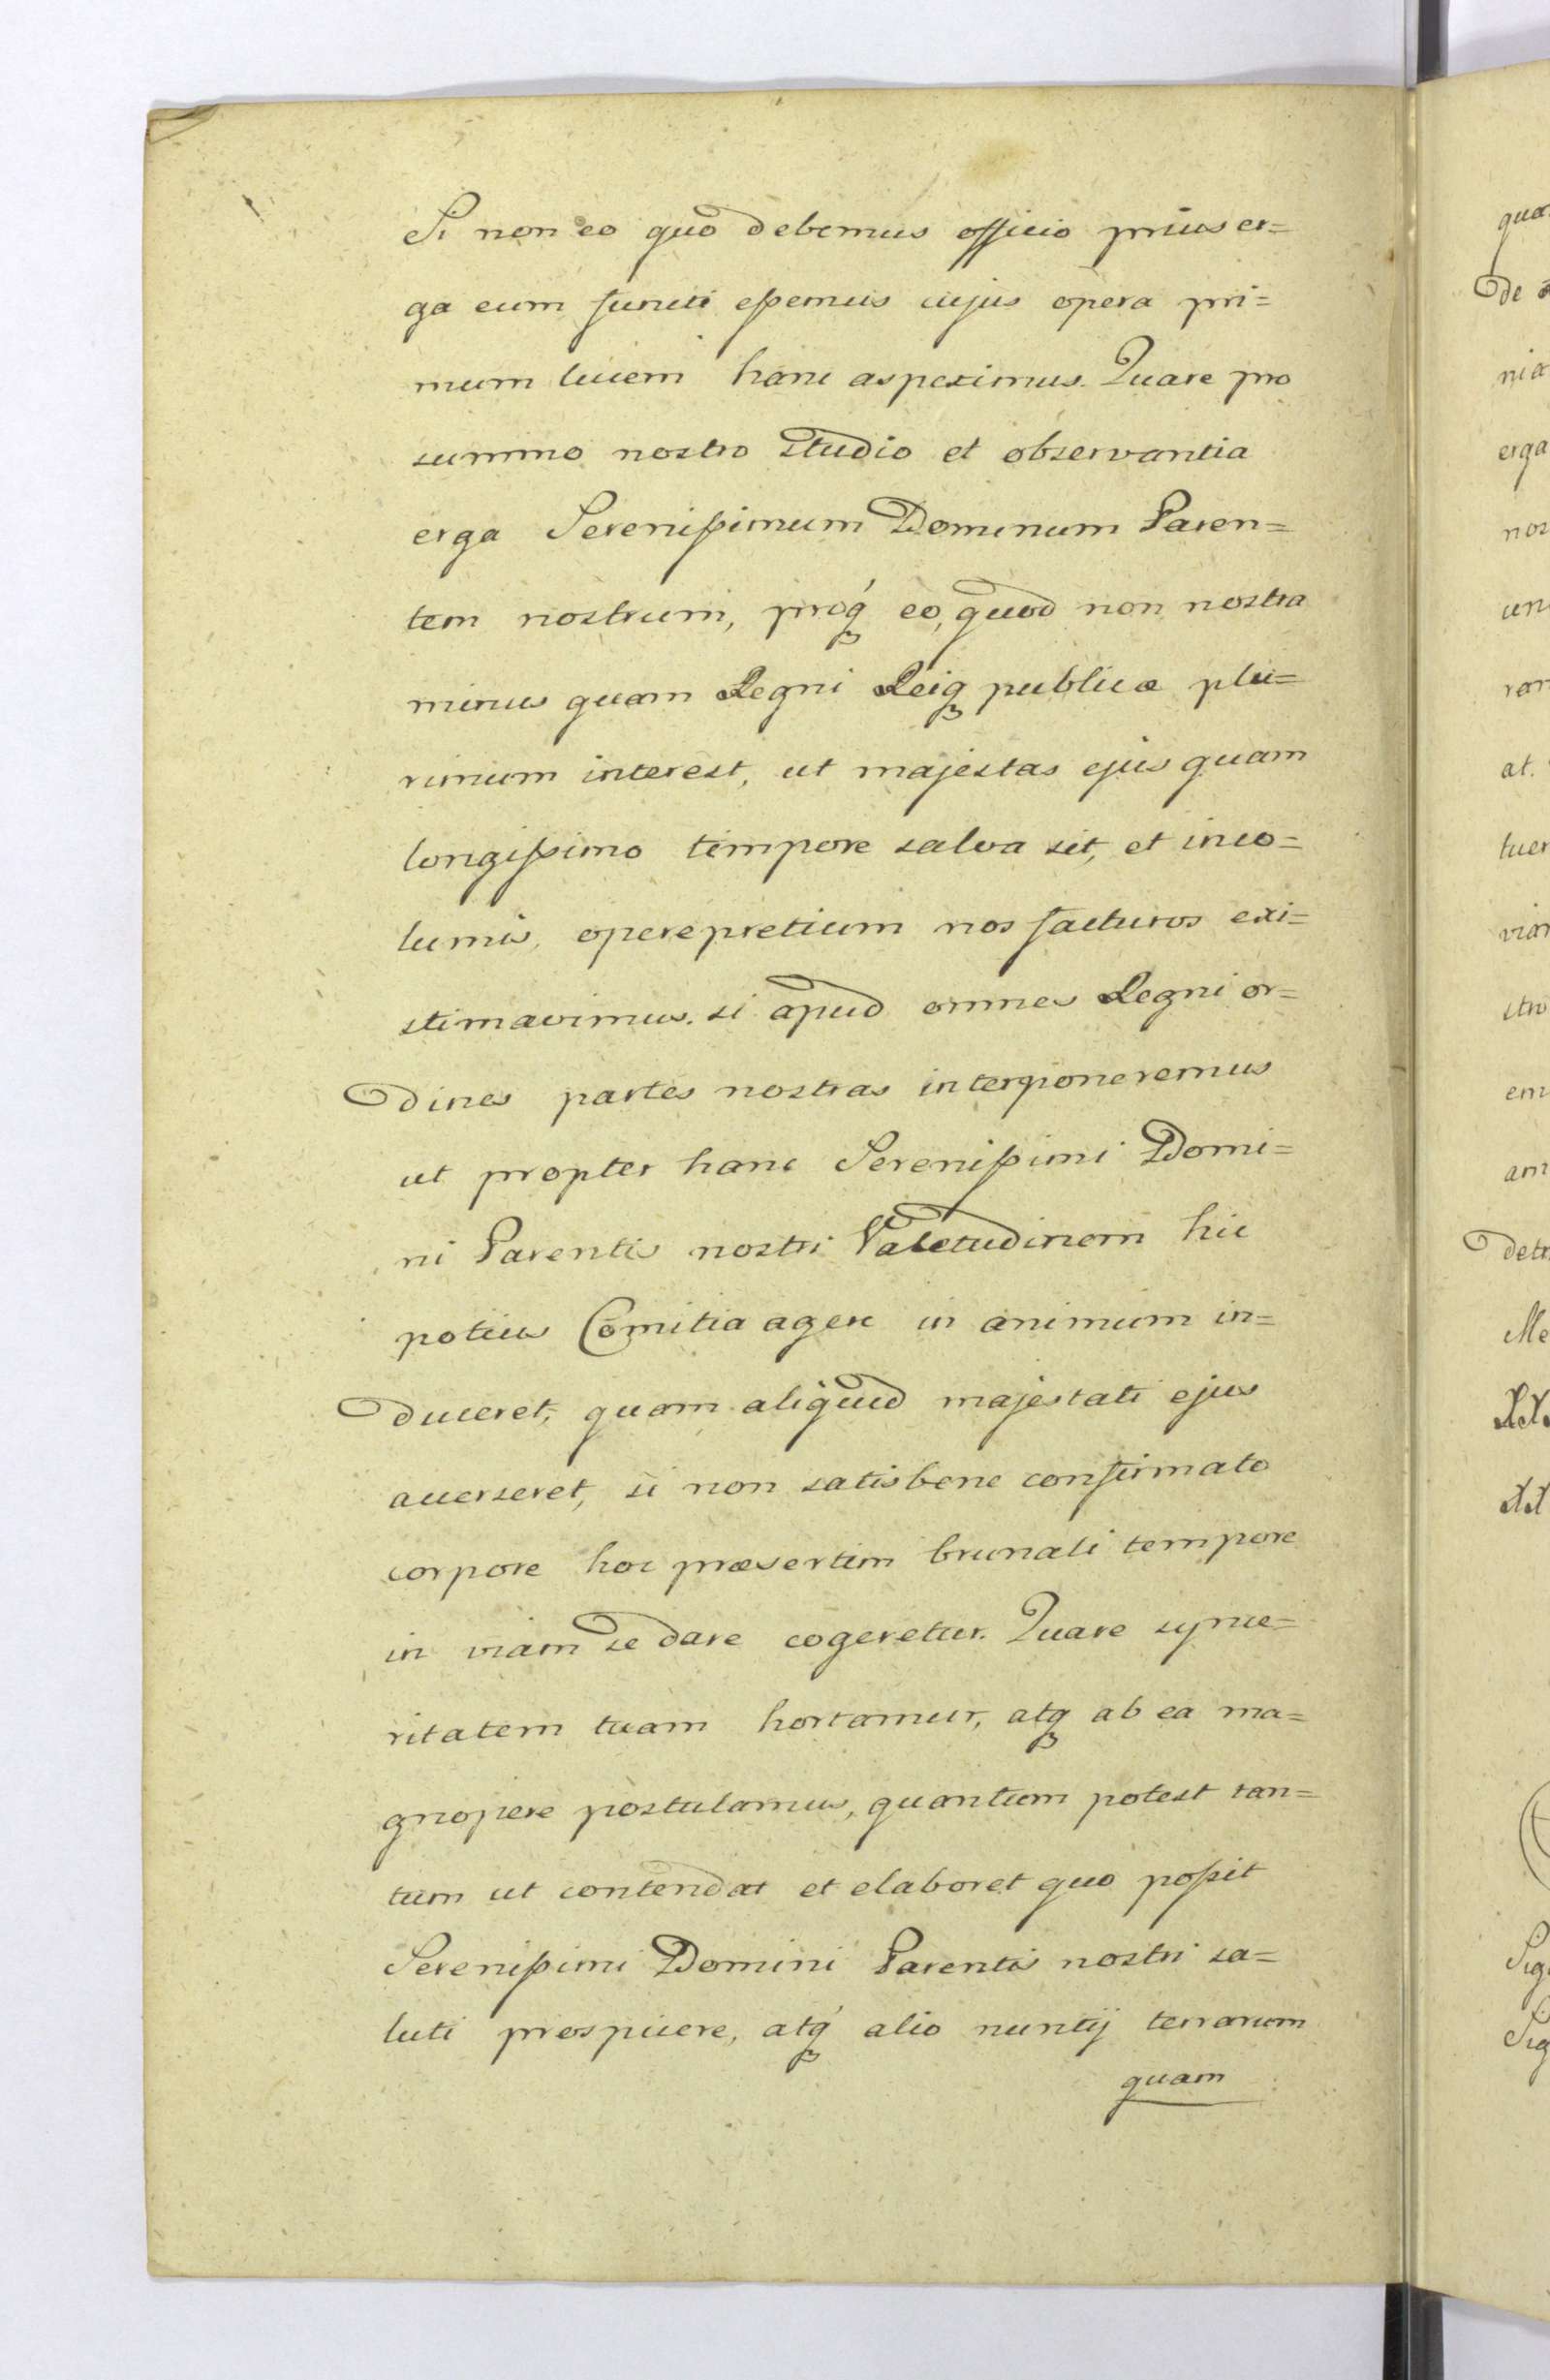 Si non eo quo debemus officio prius er=
ga eum functi eßemus cujus opera pri=
mum lucem hanc aspeximus. Quare pro
summo nostro studio et observantia
erga Serenißimum Dominum Paren=
tem nostrum, proq́ʒ eo, quod non nostra
minus quam Regni Reiqʒ publicæ plu=
rimum interest, ut majestas ejus quam
longißimo tempore salva sit, et inco=
lumis, operepretium nos facturos exi=
stimavimus. si apud omnes Regni or=
dines partes nostras interponeremus
ut propter hanc Serenißimi Domi=
ni Parentis nostri Valetudinem hic
potius Comitia agere in animum in=
duceret, quam aliquid majestati ejus
accerseret, si non satis bene confirmato
corpore hoc præsertim brumali tempore
in viam se dare cogeretur. Quare synce=
ritatem tuam hortamur, atqʒ ab ea ma=
gnopere postulamus, quantum potest tan=
tum ut contendat et elaboret quo poßit
Serenißimi Domini Parentis nostri sa=
luti prospicere, atq́ʒ alio nuntij terrarum
quam
qua
De
nia
erga
nos
un
at.
tuer
vian
stro
em
am
detr
Me
Sig
Sig